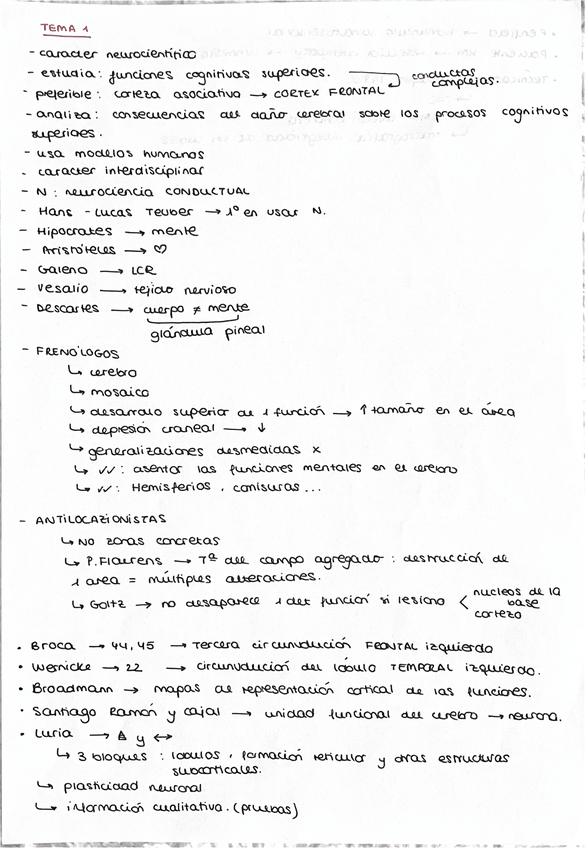 TEMA 1
- caracter neurocientífico
- estudia: funciones cognitivas superiores. conductas complejas.
- preferible: corteza asociativa → CORTEX FRONTAL
- analiza: consecuencias del daño cerebral sobre los procesos cognitivos
superiores.
- usa modelos humanos
- caracter interdisciplinar
- N: neurociencia CONDUCTUAL
- Hans-Lucas Teuber → 1º en usar N.
- Hipócrates → mente
- Aristóteles → ♡
- Galeno → LCR
- Vesalio → tejido nervioso
- Descartes → cuerpo ≠ mente
glándula pineal
- FRENÓLOGOS
↳ cerebro
↳ mosaico
↳ desarrollo superior de 1 función → ↑ tamaño en el área
↳ depresión craneal → ↓
↳ generalizaciones desmedidas x
↳ √√: asentar las funciones mentales en el cerebro
↳ √√: Hemisferios, comisuras...
- ANTILOCAZIONISTAS
↳ NO zonas concretas
↳ P.Flourens → Tª del campo agregado: destrucción de
1 area = múltiples alteraciones.
↳ Goltz → no desaparece 1 det función si lesiono < nucleos de la base
corteza
• Broca → 44, 45 → Tercera circunvolución FRONTAL izquierdo
• Wernicke → 22 → circunvolución del lóbulo TEMPORAL izquierdo.
• Broadmann → mapas de representación cortical de las funciones.
• Santiago Ramón y Cajal → unidad funcional del cerebro → neurona.
• Luria → Δ y ↔
↳ 3 bloques: lóbulos, formación reticular y otras estructuras
subcorticales.
↳ plasticidad neuronal
↳ información cualitativa. (pruebas)